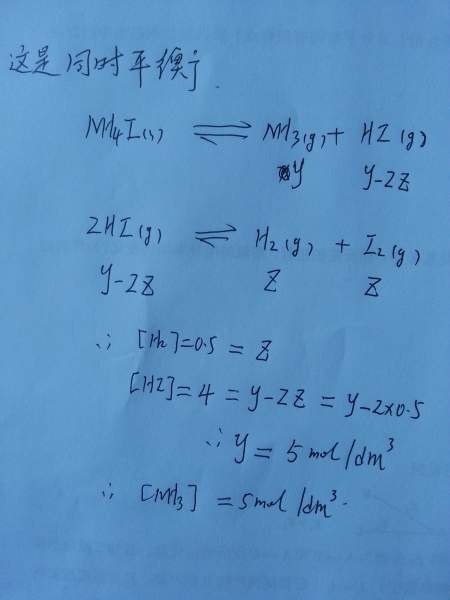 这是同时平衡，
NH4I(s) ⇌ NH3(g) + HI(g)
y y-2z
2HI(g) ⇌ H2(g) + I2(g)
y-2z z z
∴ [H2]=0.5 = z
[HI]=4 = y-2z = y-2×0.5
∴ y = 5mol/dm³
∴ [NH3] = 5mol/dm³.